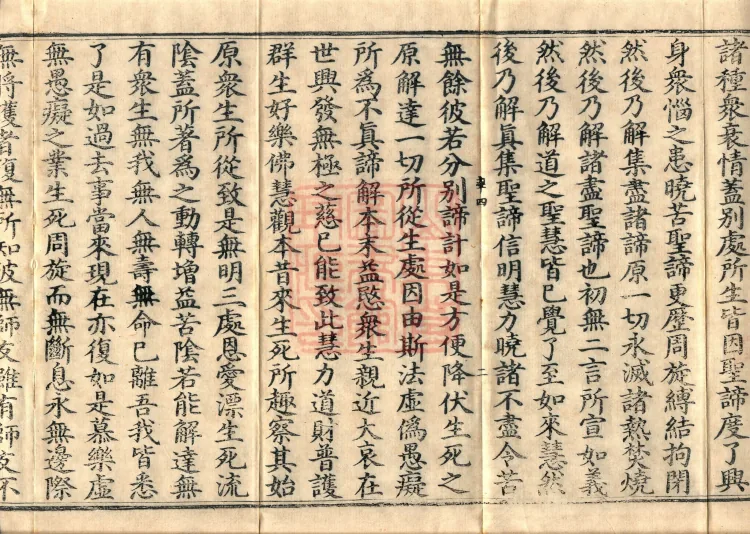 諸種衆衰情蓋別處所生皆因聖諦度了興
身衆惱之患曉苦聖諦更歷周旋縛結拘閉
然後乃解集盡諸諦原一切永滅諸熱焚燒
然後乃解諸盡聖諦也初無二言所宣如義
然後乃解道之聖慧皆已覺了至如來慧然
後乃解眞集聖諦信明慧力曉諸不盡令苦
無餘彼若分別諦計如是方便降伏生死之
原解達一切所從生處因由斯法虛偽愚癡
所爲不眞諦解本末益愍衆生親近大哀在
世興發無極之慈已能致此慧力道財普護
群生好樂佛慧觀本昔來生死所趣察其始
原衆生所從致是無明三處恩愛漂生死流
陰蓋所著爲之動轉增益苦陰若能解達無
有衆生無我無人無壽無命已離吾我皆悉
了是如過去事當來現在亦復如是慕樂虛
無愚癡之業生死周旋而無斷息永無邊際
無將護者復無所知彼無師友雖有師友不